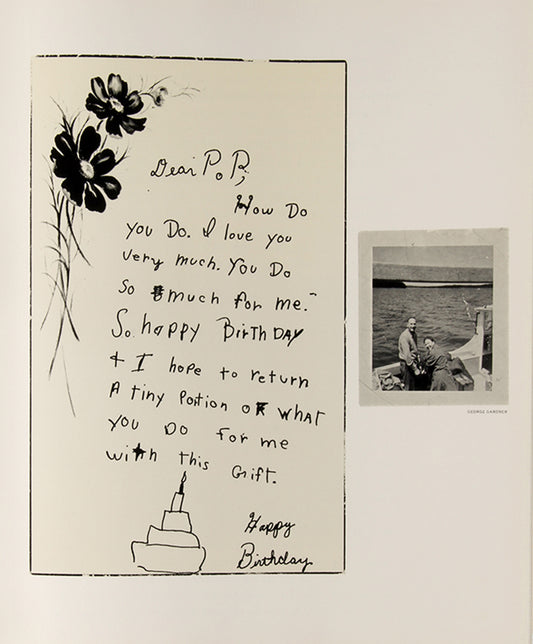 Dear PoP,
How Do
you Do. I love you
very much. You Do
so much for me.
So happy BirthDAY
+ I hope to return
A tiny Portion oF WHAT
you DO for me
with this Grift.
Happy
Birthday
GEORGE GARDNER